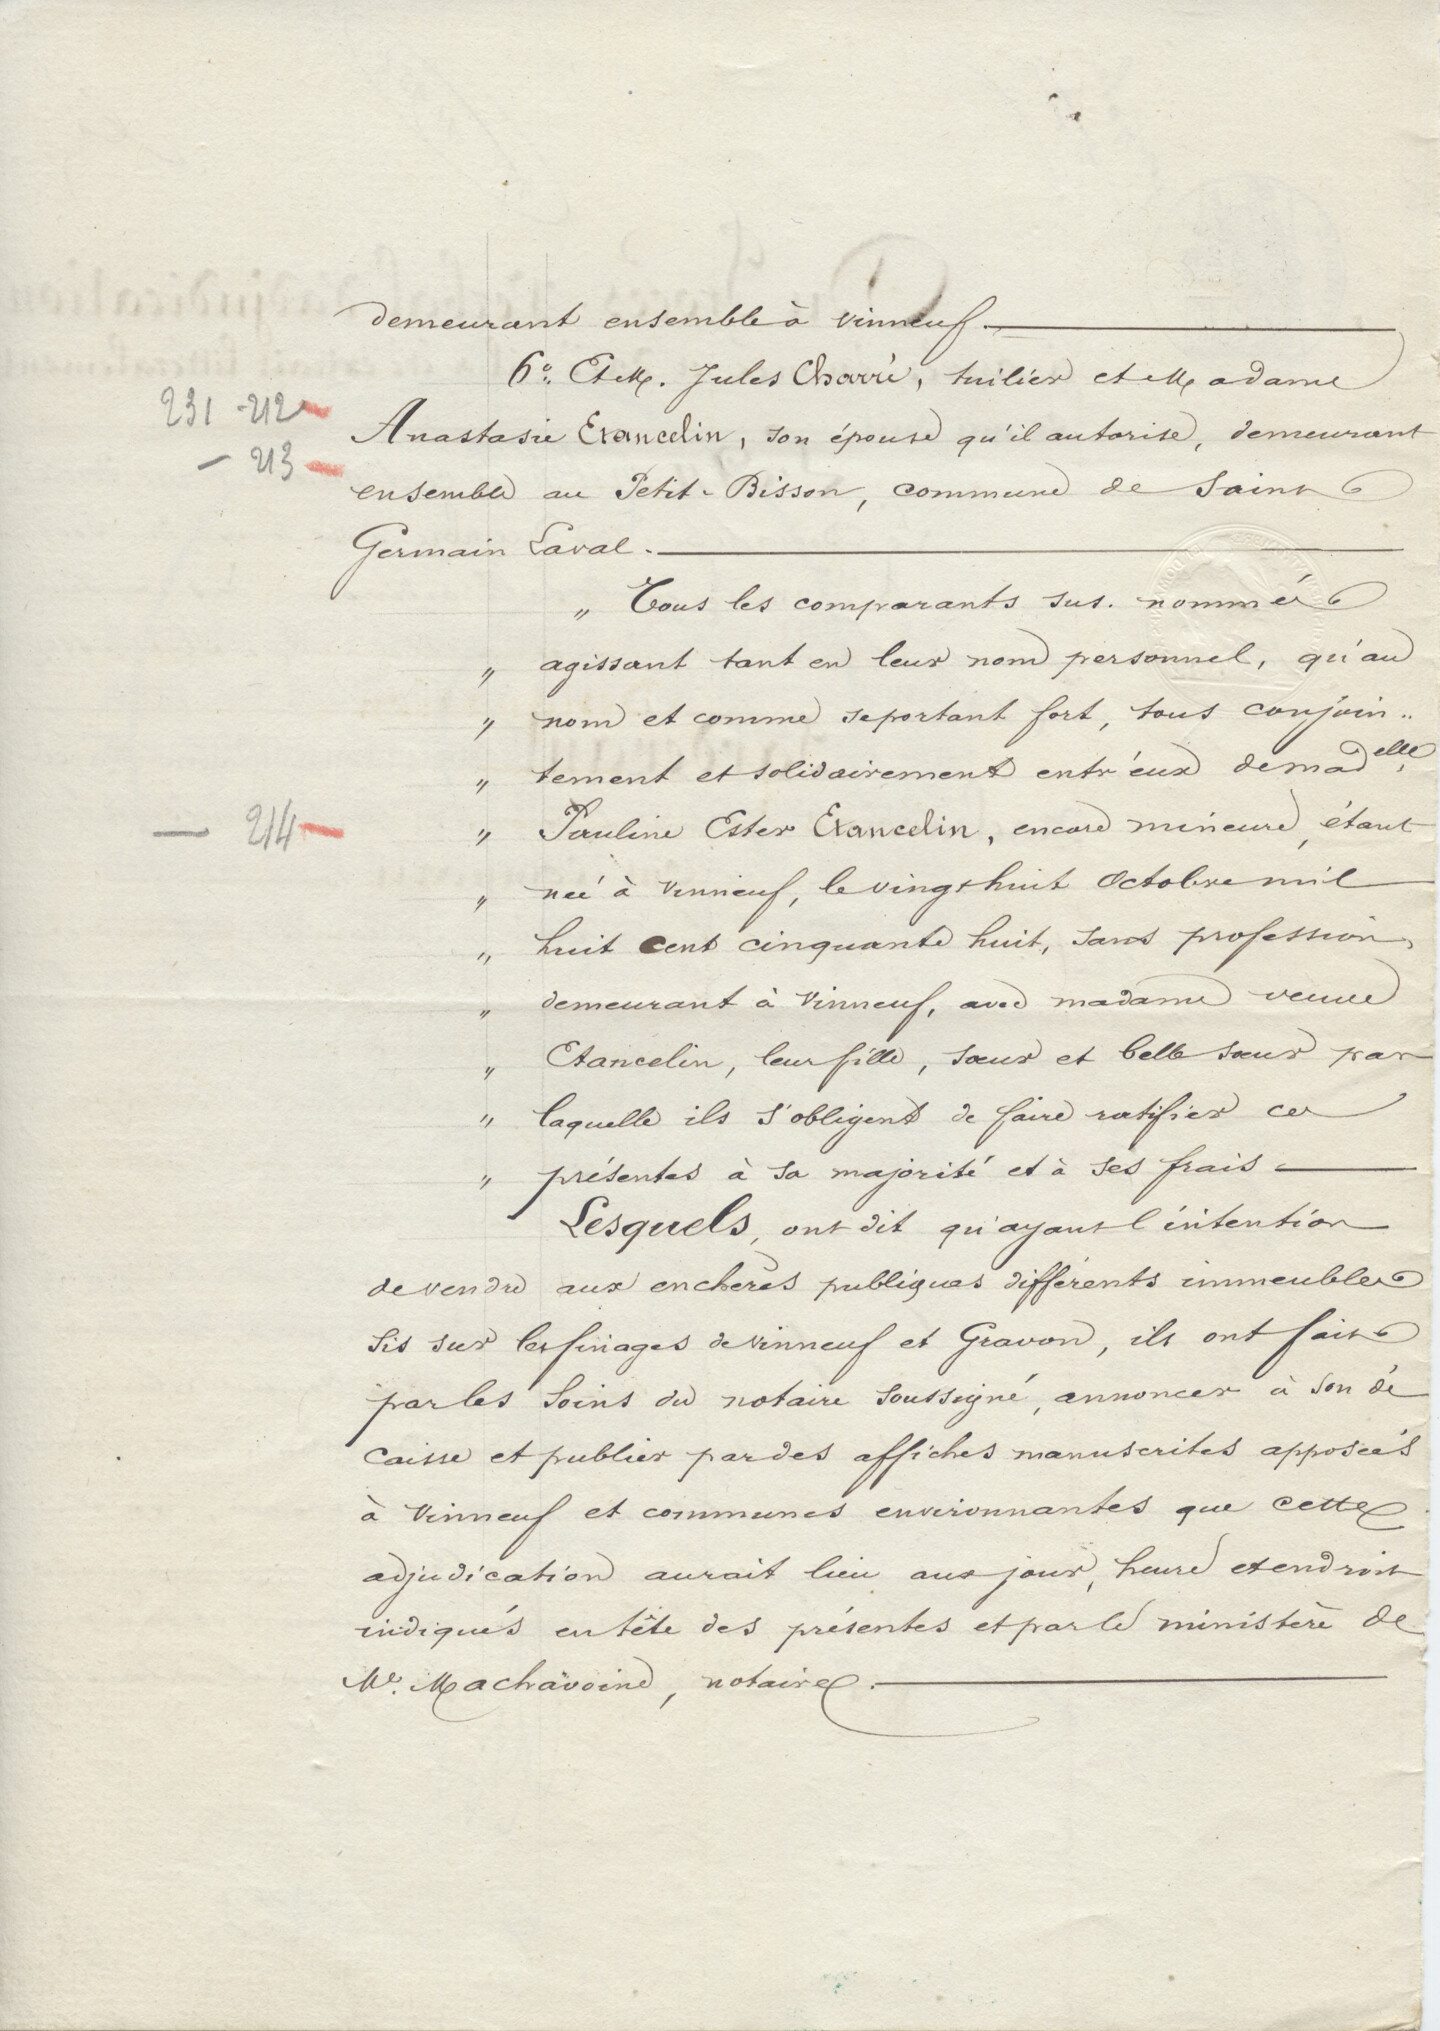 demeurant ensemble à Vinneuf.
6° Et M. Jules Charré, tuilier et Madame
231 - 212
Anastasie Etancelin, son épouse qu'il autorise, demeurant
- 213
ensemble au Petit-Bisson, commune de Saint
Germain Laval.
„ Tous les comparants sus-nommés
„ agissant tant en leur nom personnel, qu'au
„ nom et comme se portant fort, tous conjoin-
„ tement et solidairement entr'eux de Madelle
— 214
„ Pauline Ester Etancelin, encore mineure, étant
„ neé à Vinneuf, le vingt huit Octobre mil
„ huit cent cinquante huit, sans profession,
„ demeurant à Vinneuf, avec madame veuve
„ Etancelin, leur fille, sœur et belle sœur par
„ laquelle ils s'obligent de faire ratifier ces
„ présentes à sa majorité et à ses frais
Lesquels, ont dit qu'ayant l'intention
de vendre aux enchères publiques différents immeubles
sis sur les finages de Vinneuf et Gravon, ils ont fait
par les soins du notaire soussigné, annoncer à son de
caisse et publier par des affiches manuscrites apposées
à Vinneuf et communes environnantes que cette
adjudication aurait lieu aux jour, heure et endroit
indiqués en tête des présentes et par le ministère de
Me. Machavoine, notaire.